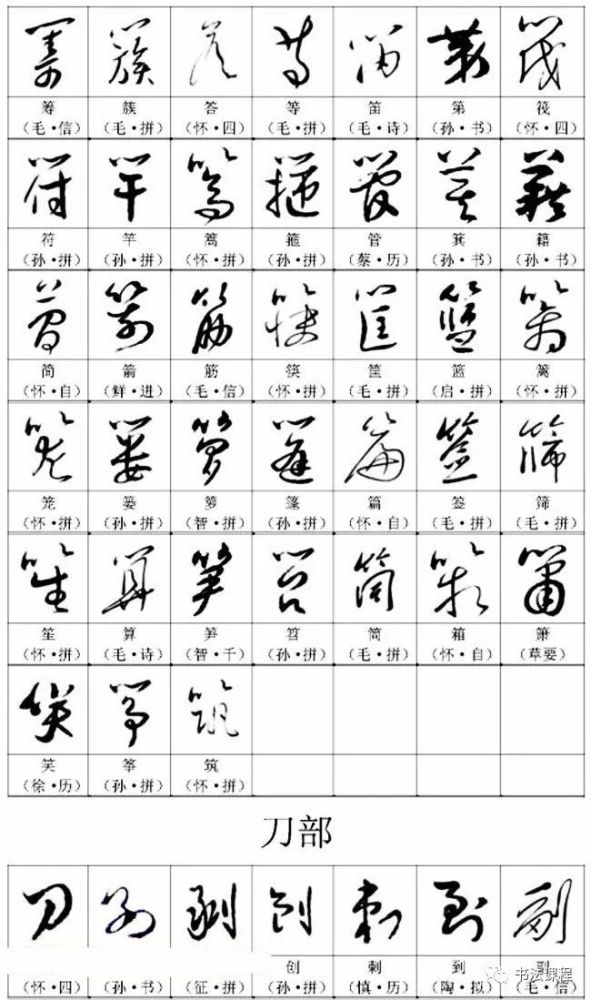 筹 簇 答 等 笛 第 筏
（毛·信） （毛·拼） （怀·四） （毛·拼） （毛·诗） （孙·书） （怀·四）
符 竿 篙 箍 管 箕 籍
（孙·拼） （孙·拼） （怀·拼） （孙·拼） （蔡·历） （孙·书） （孙·书）
简 箭 筋 筷 筐 篮 篱
（怀·自） （鲜·进） （毛·信） （怀·拼） （毛·拼） （启·拼） （怀·拼）
笼 篓 箩 篷 篇 签 筛
（怀·拼） （孙·拼） （智·拼） （孙·拼） （怀·自） （毛·拼） （毛·拼）
笙 算 笋 笤 筒 箱 箫
（怀·拼） （毛·诗） （智·千） （孙·拼） （毛·拼） （怀·自） （草要）
笑 筝 筑
（徐·历） （孙·拼） （怀·拼）
刀部
创 刺 到 副
（怀·四） （孙·书） （征·拼） （孙·拼） （慎·历） （陶·拟） （毛·信）
书法课程